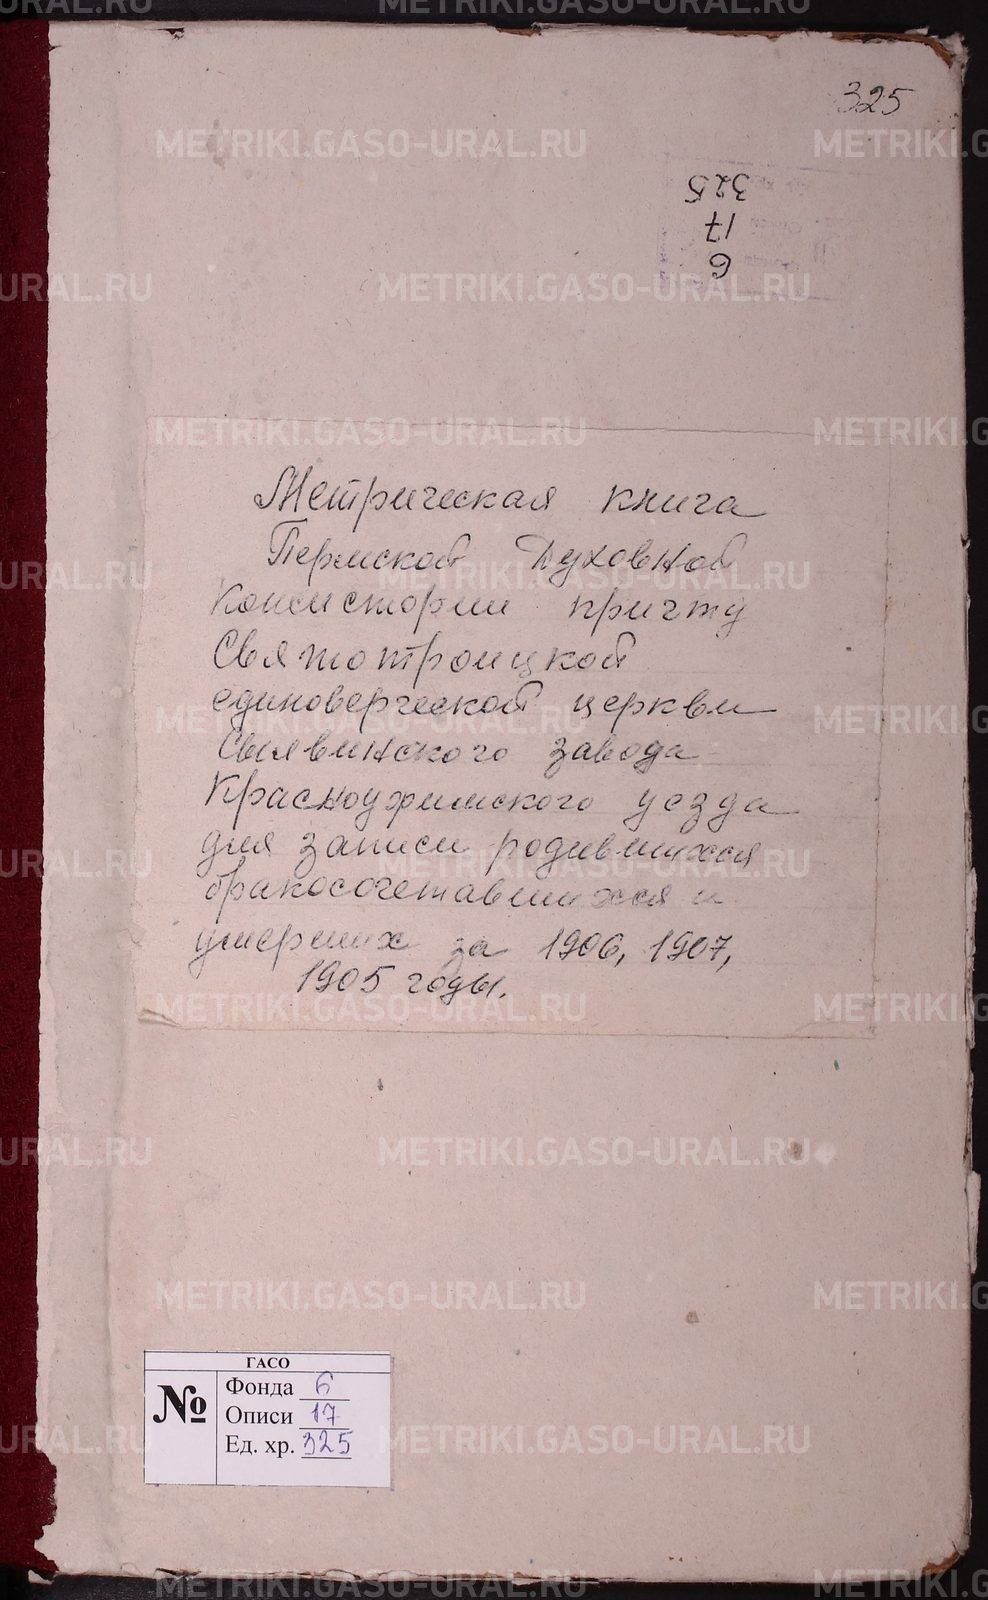 325
325
17
6
Метрическая книга
Пермской Духовной
Консистории причту
Святотроицкой
единоверческой церкви
Сылвинского завода
Красноуфимского уезда
для записи родившихся
бракосочетавшихся и
умерших за 1906, 1907,
1905 годы.
ГАСО
№
Фонда 6
Описи 17
Ед. хр. 325
METRIKI.GASO-URAL.RU